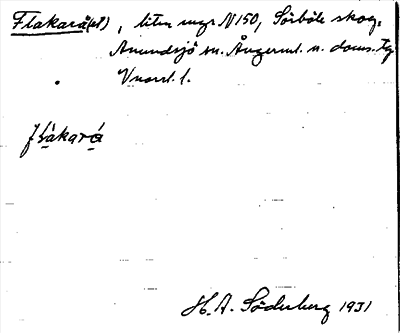 Flakará (et), liten myr N 150, Sörböle skog,
Anundsjö sn. Ångerml. n. doms. tg
Vnorrl. l.
flàkará
H. A. Söderberg 1931